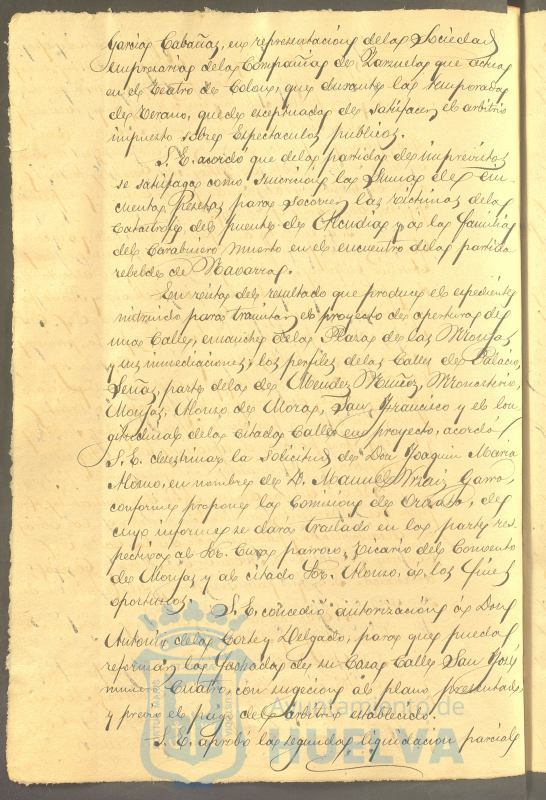 Garcia Cabañas, en representacion de la Sociedad
empresaria de la Compañia de Zarzuela que actua
en el Teatro de Colon, que durante la temporada
de Verano, quede exceptuada de satisfacer el arbitrio
impuesto sobre Espectaculos publicos.
S. E. acordó que de la partida de imprevistos
se satisfaga como suscricion la Suma de Cin-
cuenta Pesetas para socorrer las victimas de la
Catastrofe del puente de Alcudia y a la familia
del Carabinero muerto en el encuentro de la partida
rebelde de Navarra.
En vista del resultado que produce el expediente
instruido para tramitar el proyecto de apertura de
una Calle, ensanche de la Plaza de las Monjas
y sus inmediaciones; los perfiles de las Calles de Palacio,
Señas, parte de la de Mendez Nuñez, Monasterio,
Monjas, Alonso de Mora, San Francisco y el lon-
gitudinal de la Citada Calle en proyecto, acordó
S. E. desestimar la Solicitud de Don Joaquin Maria
Alonso, en nombre de D. Manuel Garro,
conforme propone la Comision de Ornato, de
cuyo informe se dará traslado en la parte res-
pectiva al Sor. Cura parroco, Vicario del Convento
de Monjas y al citado Sor. Alonso, á los fines
oportunos. S. E. concedió autorizacion á Don
Antonio de la Corte y Delgado, para que pueda
reformar la fachada de su Casa Calle San José
numero Cuatro, con sugecion al plano presentado
y previo el pago del arbitrio establecido.
S. E. aprobó la segunda liquidacion parcial
Ayuntamiento de
HUELVA